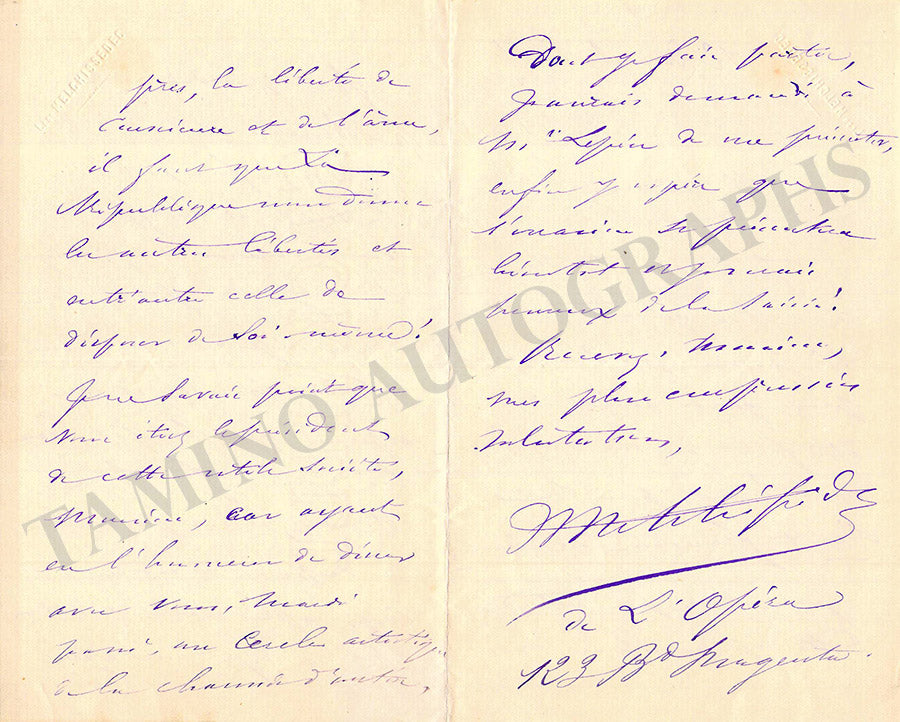 près, la liberté de
Conscience et de l'âme,
il faut que La
République nous donne
les autres libertés et
entr'autre celle de
disposer de Soi-même!
Je ne Savais point que
Vous étiez le président
de cette utile Société,
Monsieur, car ayant
eu l'honneur de dîner
avec Vous, Mardi
passé, au Cercle artistique
de la chaussée d'antin,
Dont je fais partie,
j'aurais demandé à
Mr Lépine de me présenter,
enfin j'espère que
l'occasion se présentera
bientôt et je serais
heureux de la Saisir!
Recevez, Monsieur,
mes plus empressées
Salutations,
Melchissédec
de L'Opéra
123 Bd Magenta.
MELCHISSEDEC
TAMINO AUTOGRAPHS